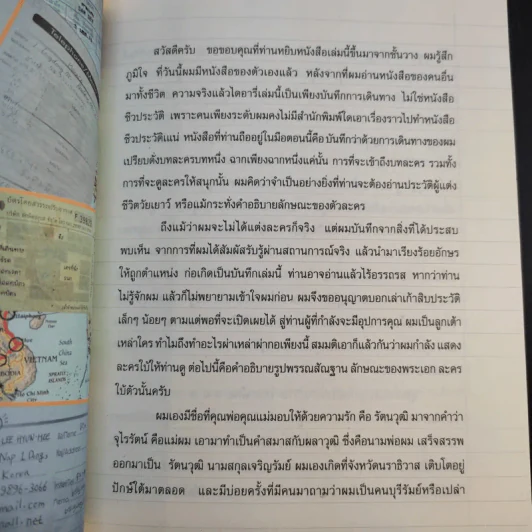 สวัสดีครับ ขอขอบคุณที่ท่านหยิบหนังสือเล่มนี้ขึ้นมาจากชั้นวาง ผมรู้สึก
ภูมิใจ ที่วันนี้ผมมีหนังสือของตัวเองแล้ว หลังจากที่ผมอ่านหนังสือของคนอื่น
มาทั้งชีวิต ความจริงแล้วไดอารี่เล่มนี้เป็นเพียงบันทึกการเดินทาง ไม่ใช่หนังสือ
ชีวประวัติ เพราะคนเพียงระดับผมคงไม่มีสำนักพิมพ์ใดเอาเรื่องราวไปทำหนังสือ
ชีวประวัติแน่ หนังสือที่ท่านถืออยู่ในมือตอนนี้คือบันทึกว่าด้วยการเดินทางของผม
เปรียบดั่งบทละครบทหนึ่ง ฉากเพียงฉากหนึ่งแค่นั้น การที่จะเข้าถึงบทละคร รวมทั้ง
การที่จะดูละครให้สนุกนั้น ผมคิดว่าจำเป็นอย่างยิ่งที่ท่านจะต้องอ่านประวัติผู้แต่ง
ชีวิตวัยเยาว์ หรือแม้กระทั่งคำอธิบายลักษณะของตัวละคร
ถึงแม้ว่าผมจะไม่ได้แต่งละครก็จริง แต่ผมบันทึกจากสิ่งที่ได้ประสบ
พบเห็น จากการที่ผมได้สัมผัสรับรู้ผ่านสถานการณ์จริง แล้วนำมาเรียงร้อยอักษร
ให้ถูกตำแหน่ง ก่อเกิดเป็นบันทึกเล่มนี้ ท่านอาจอ่านแล้วไร้อรรถรส หากว่าท่าน
ไม่รู้จักผม แล้วก็ไม่พยายามเข้าใจผมก่อน ผมจึงขออนุญาตบอกเล่าเก้าสิบประวัติ
เล็กๆ น้อยๆ ตามแต่พอที่จะเปิดเผยได้ สู่ท่านผู้ที่กำลังจะมีอุปการคุณ ผมเป็นลูกเต้า
เหล่าใคร ทำไมถึงทำอะไรผ่าเหล่าผ่ากอเพียงนี้ สมมติเอาก็แล้วกันว่าผมกำลัง แสดง
ละครใบ้ให้ท่านดู ต่อไปนี้คือคำอธิบายรูปพรรณสัณฐาน ลักษณะของพระเอก ละคร
ใบ้ตัวนั้นครับ
ผมเองมีชื่อที่คุณพ่อคุณแม่มอบให้ด้วยความรัก คือ รัตนวุฒิ มาจากคำว่า
จุไรรัตน์ คือแม่ผม เอามาทำเป็นคำสมาสกับผลาวุฒิ ซึ่งคือนามพ่อผม เสร็จสรรพ
ออกมาเป็น รัตนวุฒิ นามสกุลเจริญรัมย์ ผมเองเกิดที่จังหวัดนราธิวาส เติบโตอยู่
ปักษ์ใต้มาตลอด และมีบ่อยครั้งที่มีคนมาถามว่าผมเป็นคนบุรีรัมย์หรือเปล่า
VIETNAM
South
China
Sea
SPRATLY
ISLANDS
Ho Chi Minh City
Korea